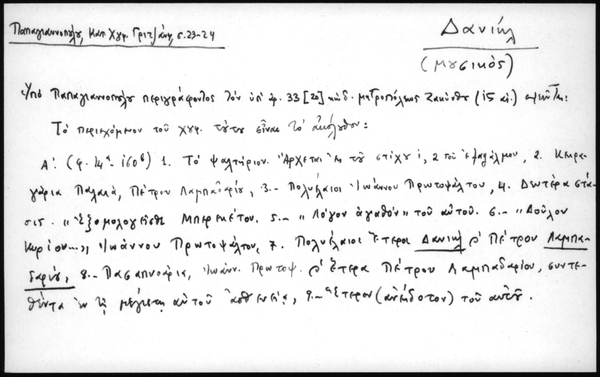 Παπαγιαννοπούλου, Κατ. Χγφ. Γριτσάνη, σ. 23-24
Δανιήλ
(μουσικός)
Ὑπὸ Παπαγιαννοπούλου περιγράφοντος τὸν ὑπ' ἀρ. 33 [20] κώδ. μητροπόλεως Ζακύνθου (ΙΣ αἰ.)
Τὸ περιεχόμενον τοῦ χγφ. τούτου εἶναι τὸ ἀκόλουθον:
Α'. (φ. 14α - 160β) 1. Τὸ ψαλτήριον. Ἄρχεται ἐκ τοῦ στίχου 1, 2 τοῦ ψαλμου, 2. Κεκρα-
γάρια Παλαιά, Πέτρου Λαμπαδαρίου, 3.- Πολυέλαιοι Ἰωάννου Πρωτοψάλτου, 4. Δευτέρα στά-
σις. "Ἐξομολογεῖσθε Μπερεκέτου. 5.- "Λόγον ἀγαθόν" τοῦ αὐτοῦ. 6.- "Δοῦλοι
Κυρίου...", Ἰωάννου Πρωτοψάλτου, 7. Πολυέλαιοι ἕτεροι Δανιήλ & Πέτρου Λαμπα-
δαρίου, 8.- Πασαπνοάρια, Ἰωάνν. Πρωτοψ. & ἕτερα Πέτρου Λαμπαδαρίου, συντε-
θέντα ἐν τῇ μεγίστῃ αὐτοῦ ἀσθενείᾳ, 9.- Ἕτερον (ἀνέκδοτον) τοῦ αὐτοῦ.